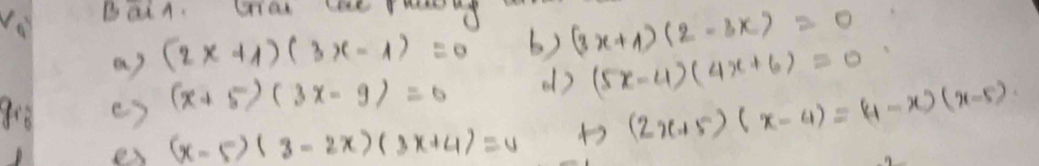 Bài 1. Giải các phương
a) (2x+1)(3x-1) = 0 b) (3x+1)(2-3x) = 0
c) (x+5)(3x-9) = 0 d) (5x-4)(4x+6) = 0
e) (x-5)(3-2x)(3x+4) = 0 f) (2x+5)(x-4) = (4-x)(x-5).